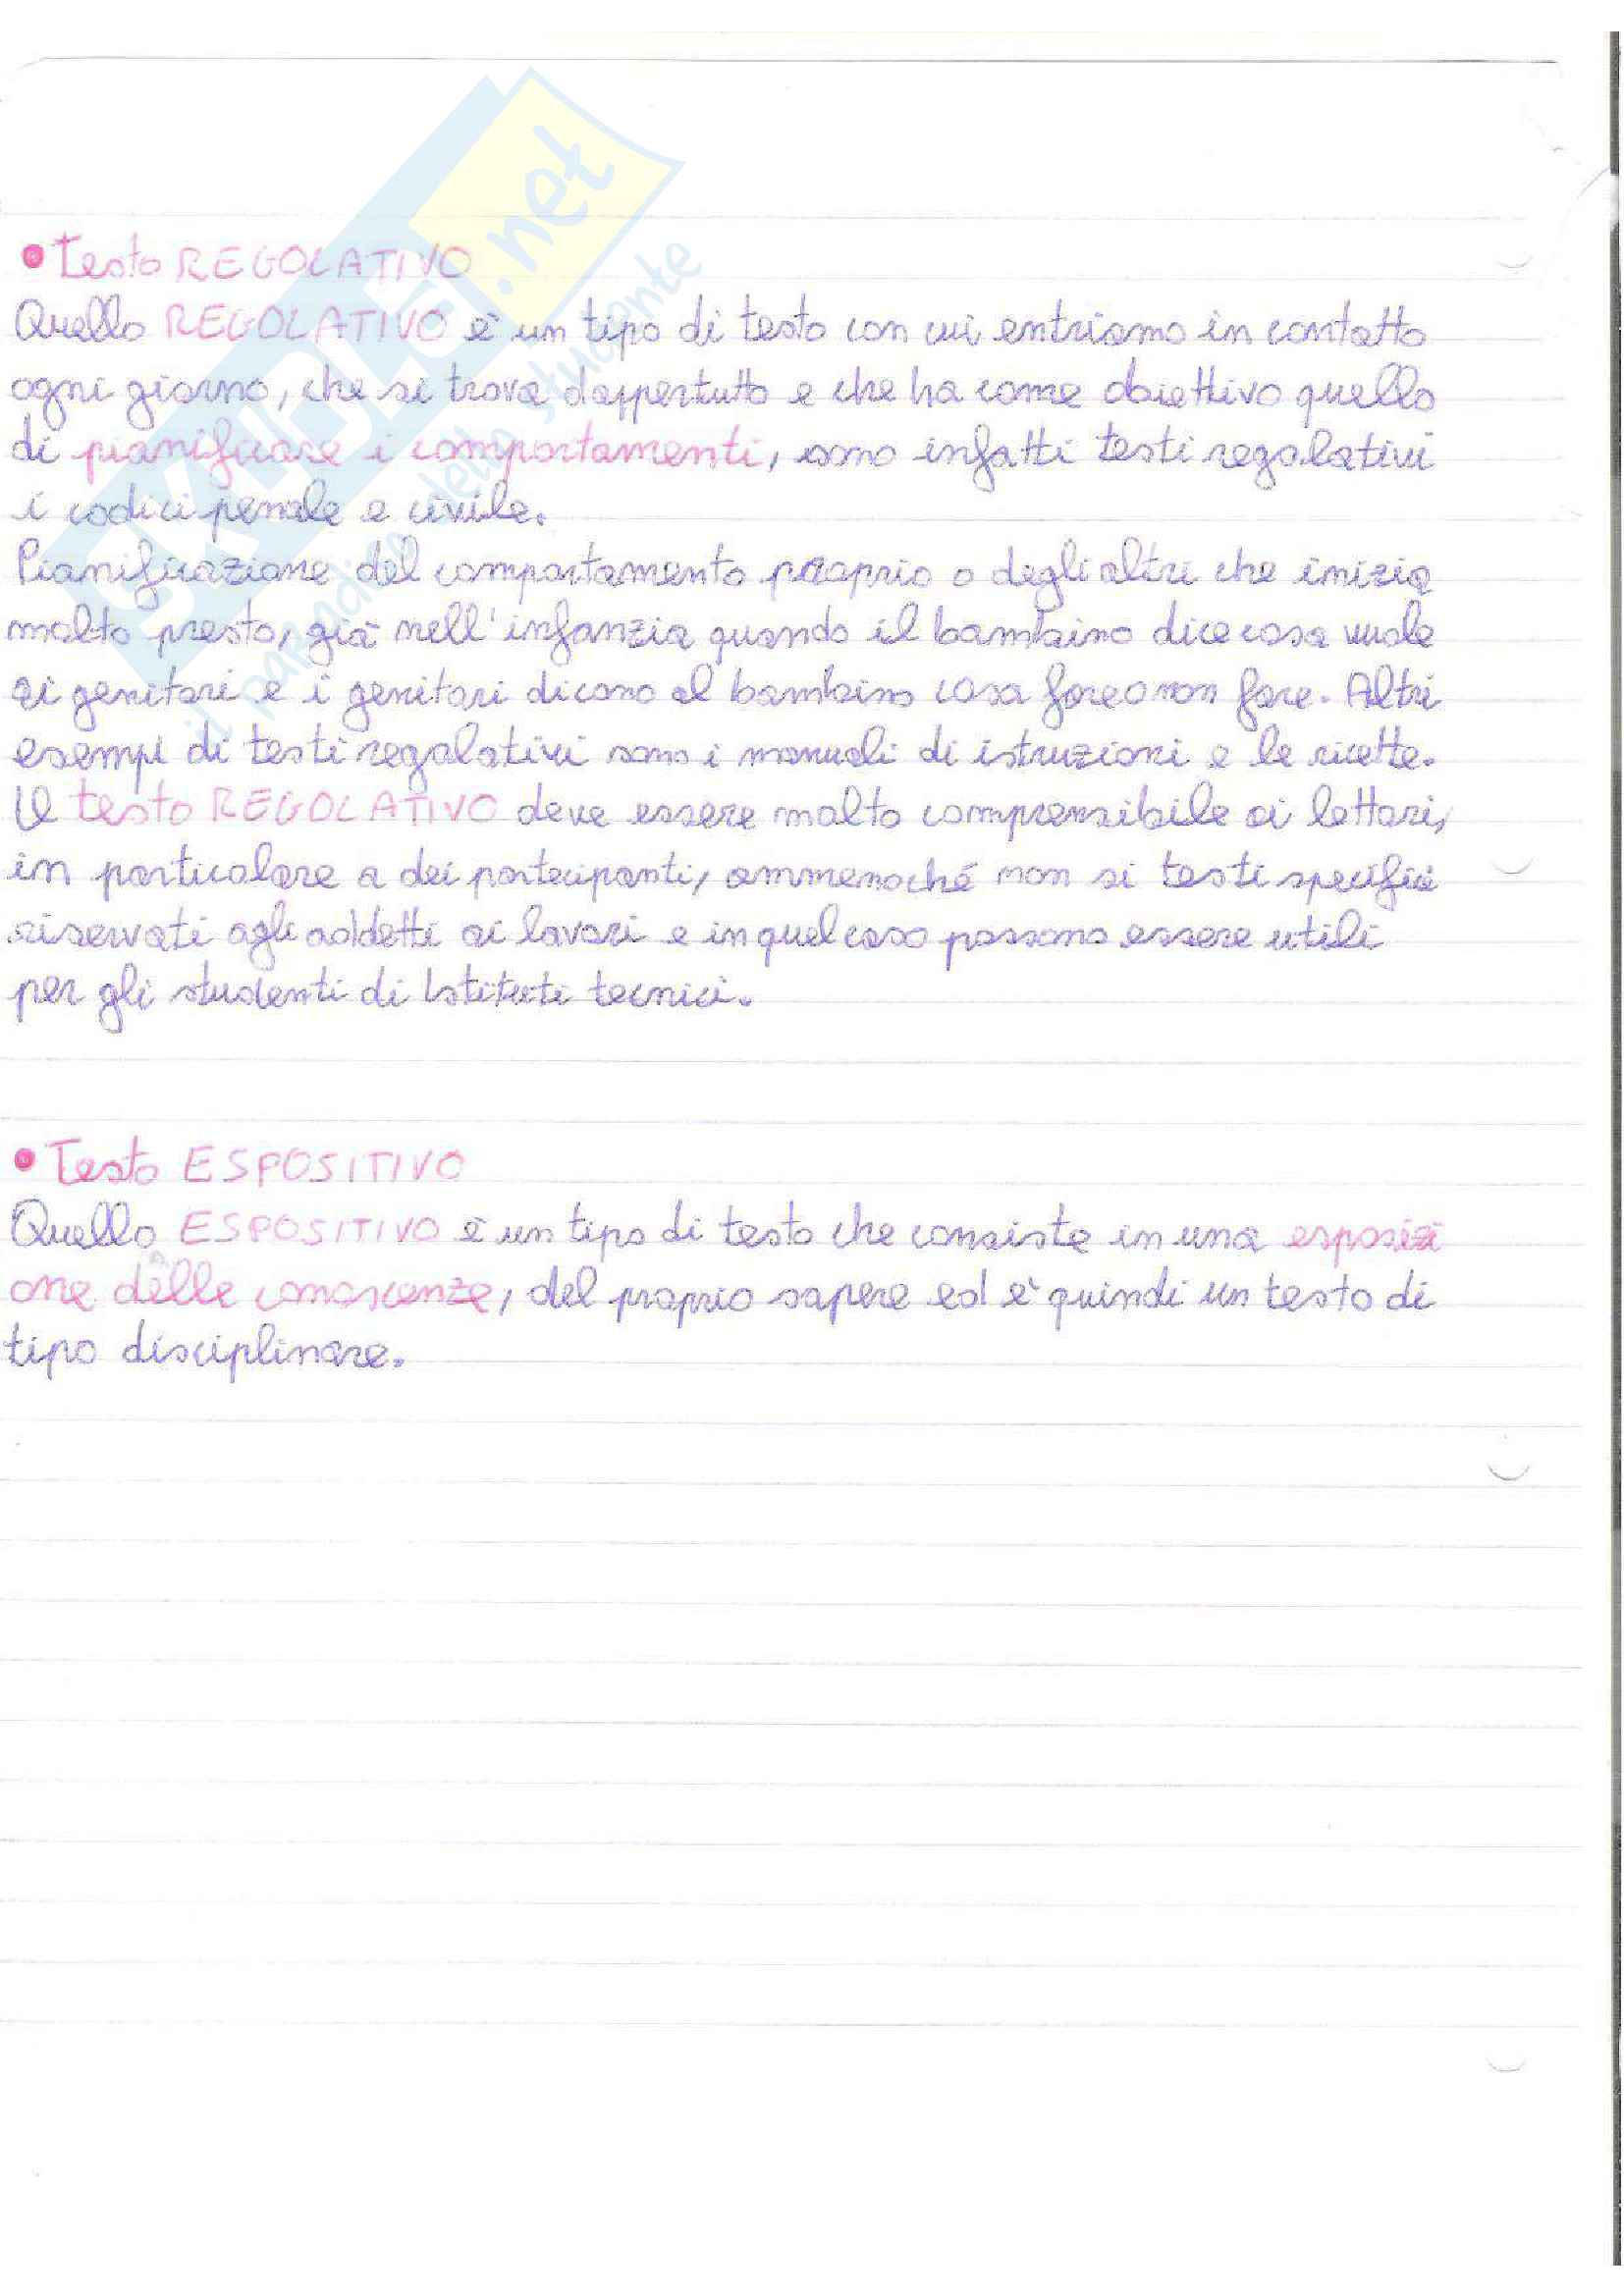 • Testo REGOLATIVO
Quello REGOLATIVO è un tipo di testo con cui entriamo in contatto
ogni giorno, che si trova dappertutto e che ha come obiettivo quello
di pianificare i comportamenti, sono infatti testi regolativi
i codici penale e civile.
Pianificazione del comportamento proprio o degli altri che inizia
molto presto, già nell'infanzia quando il bambino dice cosa vuole
ai genitori e i genitori dicono al bambino cosa fare o non fare. Altri
esempi di testi regolativi sono i manuali di istruzioni e le ricette.
Il testo REGOLATIVO deve essere molto comprensibile ai lettori,
in particolare a dei partecipanti, ammenoché non si testi specifici
riservati agli addetti ai lavori e in quel caso possono essere utili
per gli studenti di Istituti tecnici.
• Testo ESPOSITIVO
Quello ESPOSITIVO è un tipo di testo che consiste in una esposizi
one delle conoscenze, del proprio sapere ed è quindi un testo di
tipo disciplinare.
SKUOLA.net
il paradiso dello studente